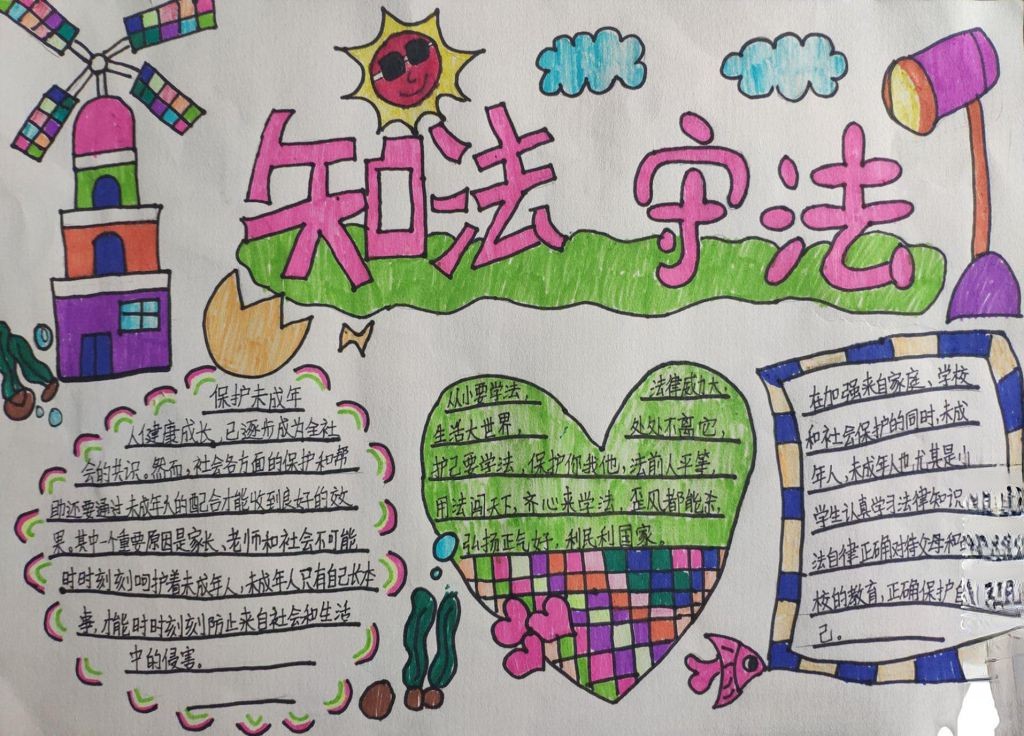 知法 守法
保护未成年
人健康成长,已逐步成为全社
会的共识。然而,社会各方面的保护和帮
助还要通过未成年人的配合才能收到良好的效
果。其中一个重要原因是家长、老师和社会不可能
时时刻刻呵护着未成年人,未成年人只有自己长本
事,才能时时刻刻防止来自社会和生活
中的侵害。
从小要学法,
生活大世界,
法律威力大,
处处不离它,
护己要学法,保护你我他,法前人平等,
用法闯天下,齐心来学法,歪风都能杀,
弘扬正气好,利民利国家。
在加强来自家庭、学校
和社会保护的同时,未成
年人,未成年人也尤其是小
学生认真学习法律知识
法自律正确对待父母和
校的教育,正确保护自
己。